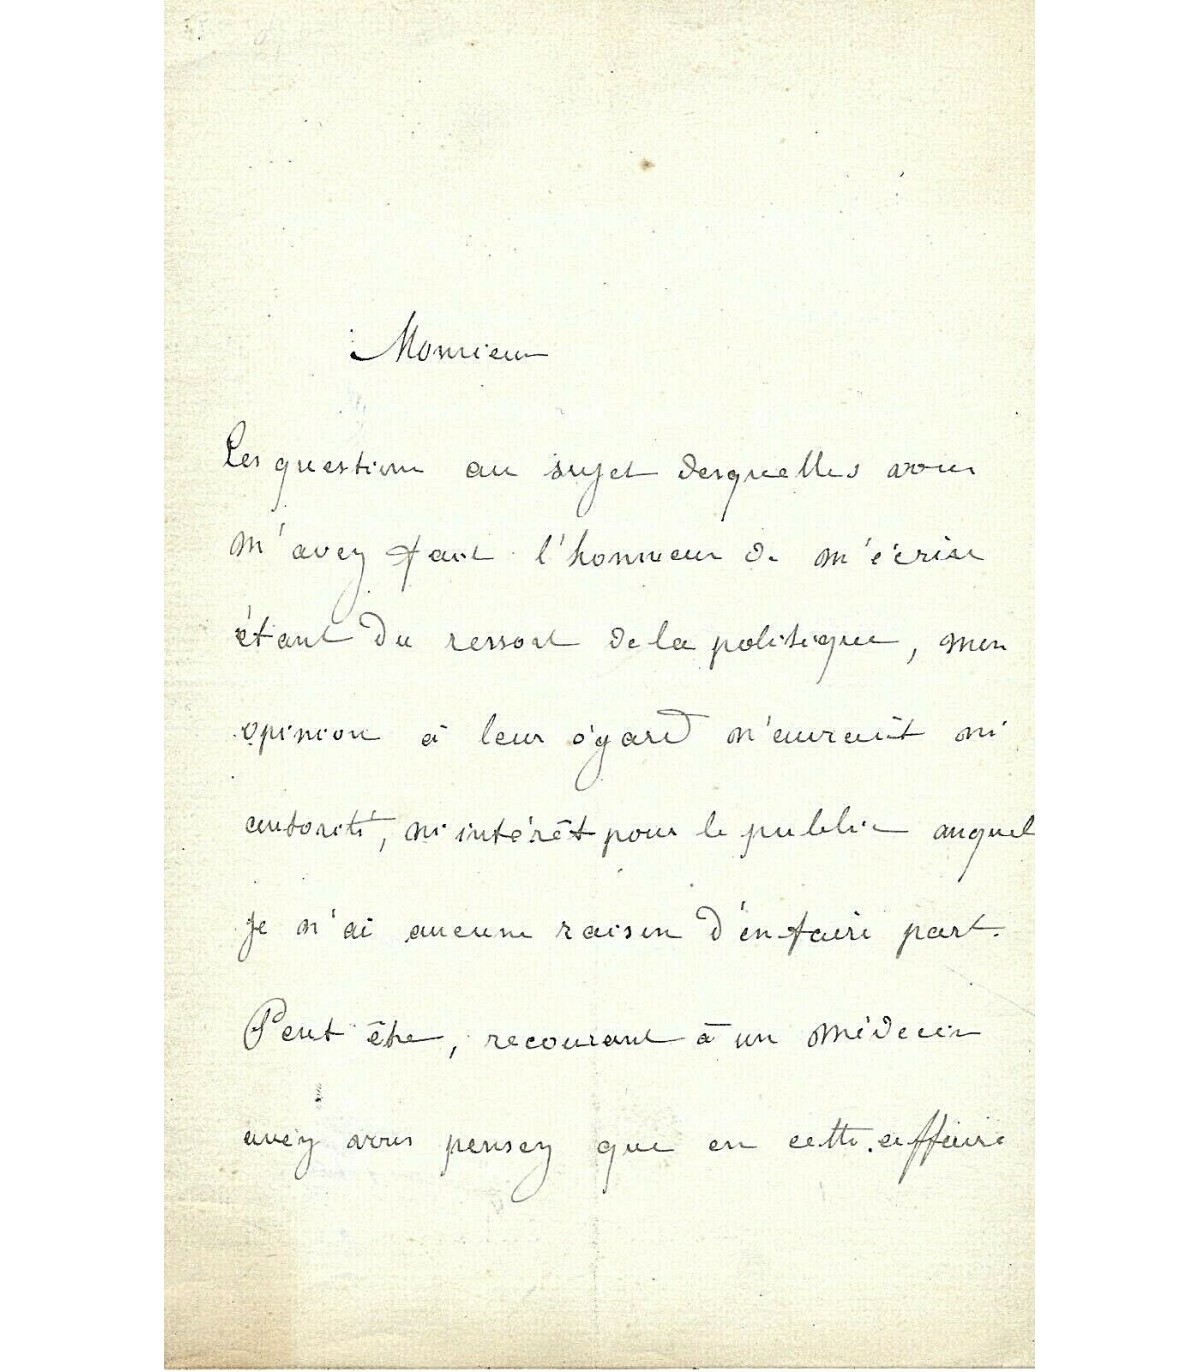 Monsieur
Les questions au sujet desquelles vous
m'avez fait l'honneur de m'écrire
étant du ressort de la politique, mon
opinion à leur égard n'aurait ni
autorité, ni intérêt pour le public auquel
je n'ai aucune raison d'en faire part.
Peut être, recourant à un médecin
avez vous pensez que en cette affaire